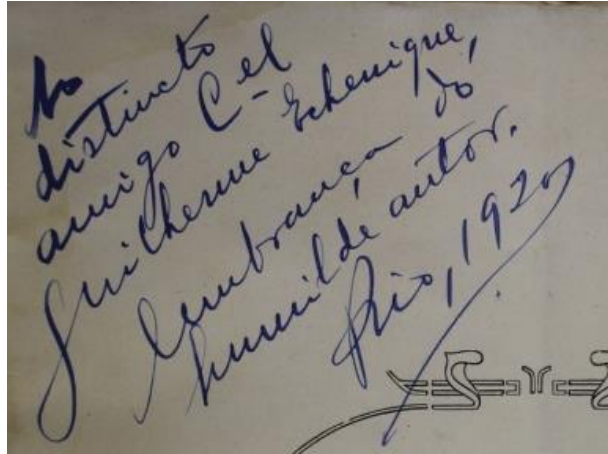 Ao
distincto
amigo C-el
Guilherme Echenique,
lembrança do
humilde autor.
Rio, 1920